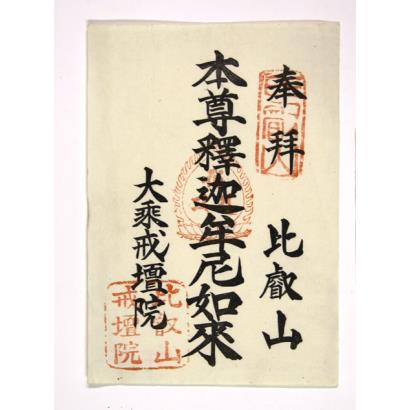 奉拝
比叡山
本尊釋迦牟尼如來
大乘戒壇院
比叡山
戒壇院